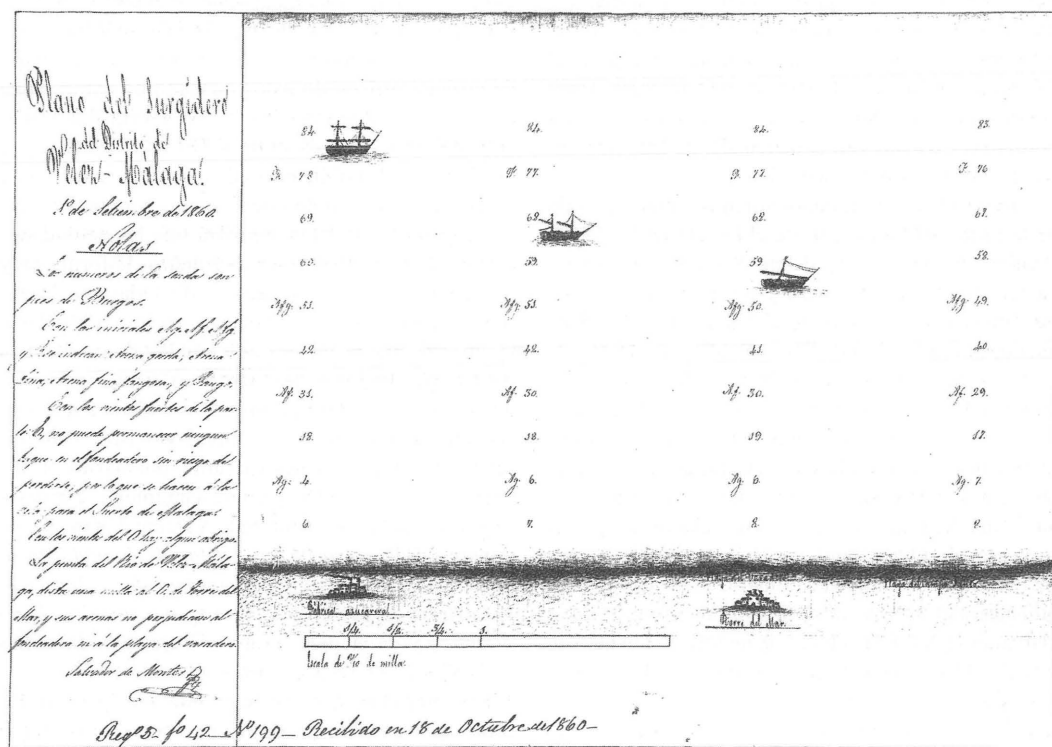 Plano del Surgidero
del Distrito de
Velez-Málaga.
1º de Setiembre de 1860.
Notas
Los numeros de la sonda son
pies de Burgos.
Con las iniciales Ag. Af. Afg.
y F. se indican Arena gorda, Arena
fina, Arena fina fangosa, y Fango.
Con los vientos fuertes de la par-
te E, no puede permanecer ningun
buque en el fondeadero sin riesgo de
perderse, por lo que se hacen á la
vela para el Puerto de Malaga.
Con los vientos del O. hay algun abrigo.
La punta del Rio de Velez-Mála-
ga, dista una milla al O. de Torre del
Mar, y sus arenas no perjudican al
fondeadero ni á la playa del varadero.
Salvador de Montes
84. 84. 84. 83.
F. 78 F. 77. F. 77. F. 76
69. 68. 68. 67.
60. 59. 59 58.
Afg. 51. Afg. 51. Afg. 50. Afg. 49.
42. 42. 41. 40
Af. 31. Af. 30. Af. 30. Af. 29.
18. 18. 19. 17.
Ag. 4. Ag. 6. Ag. 6. Ag. 7
6. 7. 8. 9.
Playa del Varadero
Fábrica azucarera
Torre del Mar.
1/4. 1/2. 3/4. 1.
Escala de de milla.
Regº 5- fº 42- Nº 199- Recibido en 18 de Octubre de 1860-